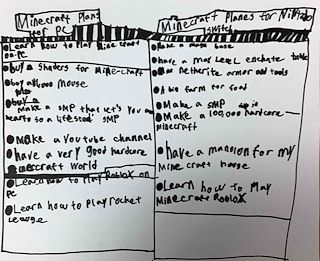 Minecraft Plans
for PC
Learn how to Play Minecraft
on PC
buy a shaders for Minecraft
buy a mouse
buy a
make a SMP that let's you
hearts so a lifesteal SMP
Make a Youtube channel
have a very good hardcore
minecraft World
Learn how to play Roblox on
PC
Learn how to play rocket
leauge
Minecraft Planes for Nintendo
switch
Make a mega base
have a max Level enchate table
Max Netherite armor and tools
A big farm for food
Make a SMP
Make a 100,000 hardcore
minecraft
have a mansion for my
Mine craft house
Learn how to play
Minecraft Roblox